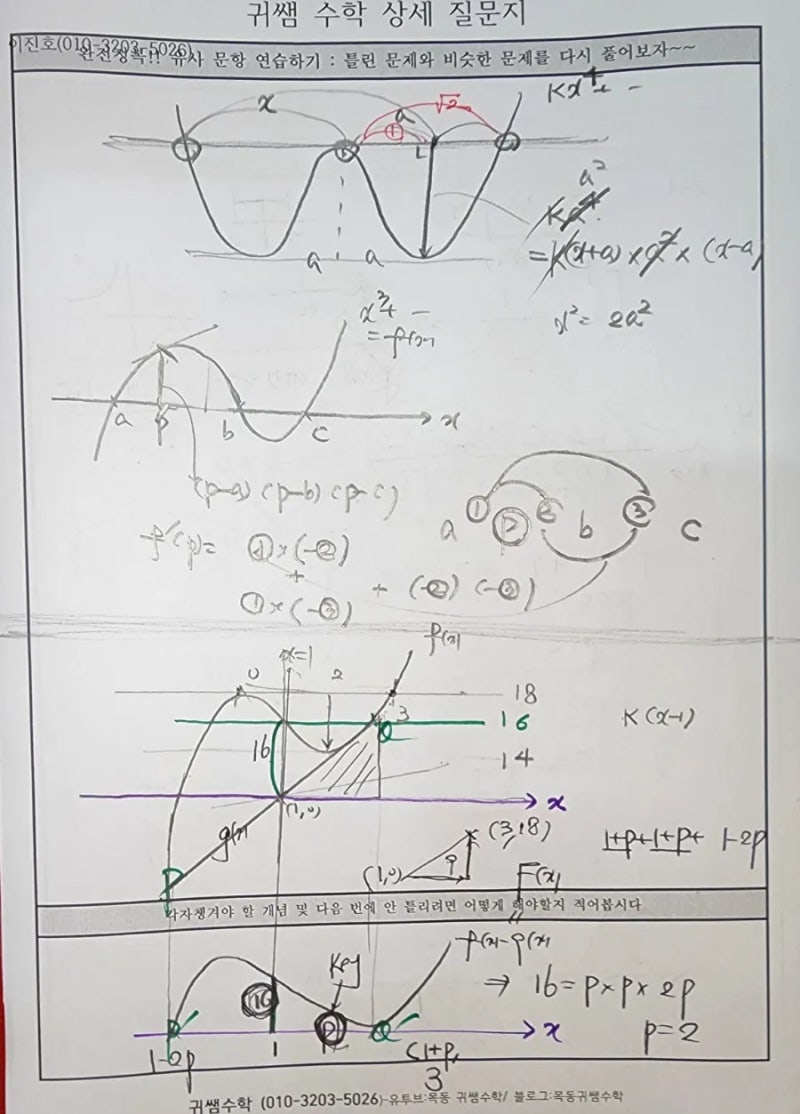 귀쌤 수학 상세 질문지
이진호(010-3203-5026)
완전정복!! 유사 문항 연습하기 : 틀린 문제와 비슷한 문제를 다시 풀어보자~~
x
a
①
√2
Kx⁴+ -
a²
= K(x+a) × a² × (x-a)
a a
x² = 2a²
x³+ -
= f(x)
a p b c x
(p-a) (p-b) (p-c)
a ① p ② b ③ c
f'(p) = ① × (-②)
+
① × (-③)
+ (-②) (-③)
f(x)
x=1
0 2
18
3
16
Q
K (x-1)
16
14
(1,0)
x
g(x)
(3,18)
(1,0)
9
1+p+1+p+ 1-2p
P
F(x)
각자챙겨야 할 개념 및 다음 번에 안 틀리려면 어떻게 해야할지 적어봅시다
"
f(x)-g(x)
Key
⇒ 16 = p × p × 2p
16
P' P Q' x
p=2
1-2p 1 (1+p)
3
귀쌤수학 (010-3203-5026)-유투브:목동 귀쌤수학/ 블로그:목동귀쌤수학